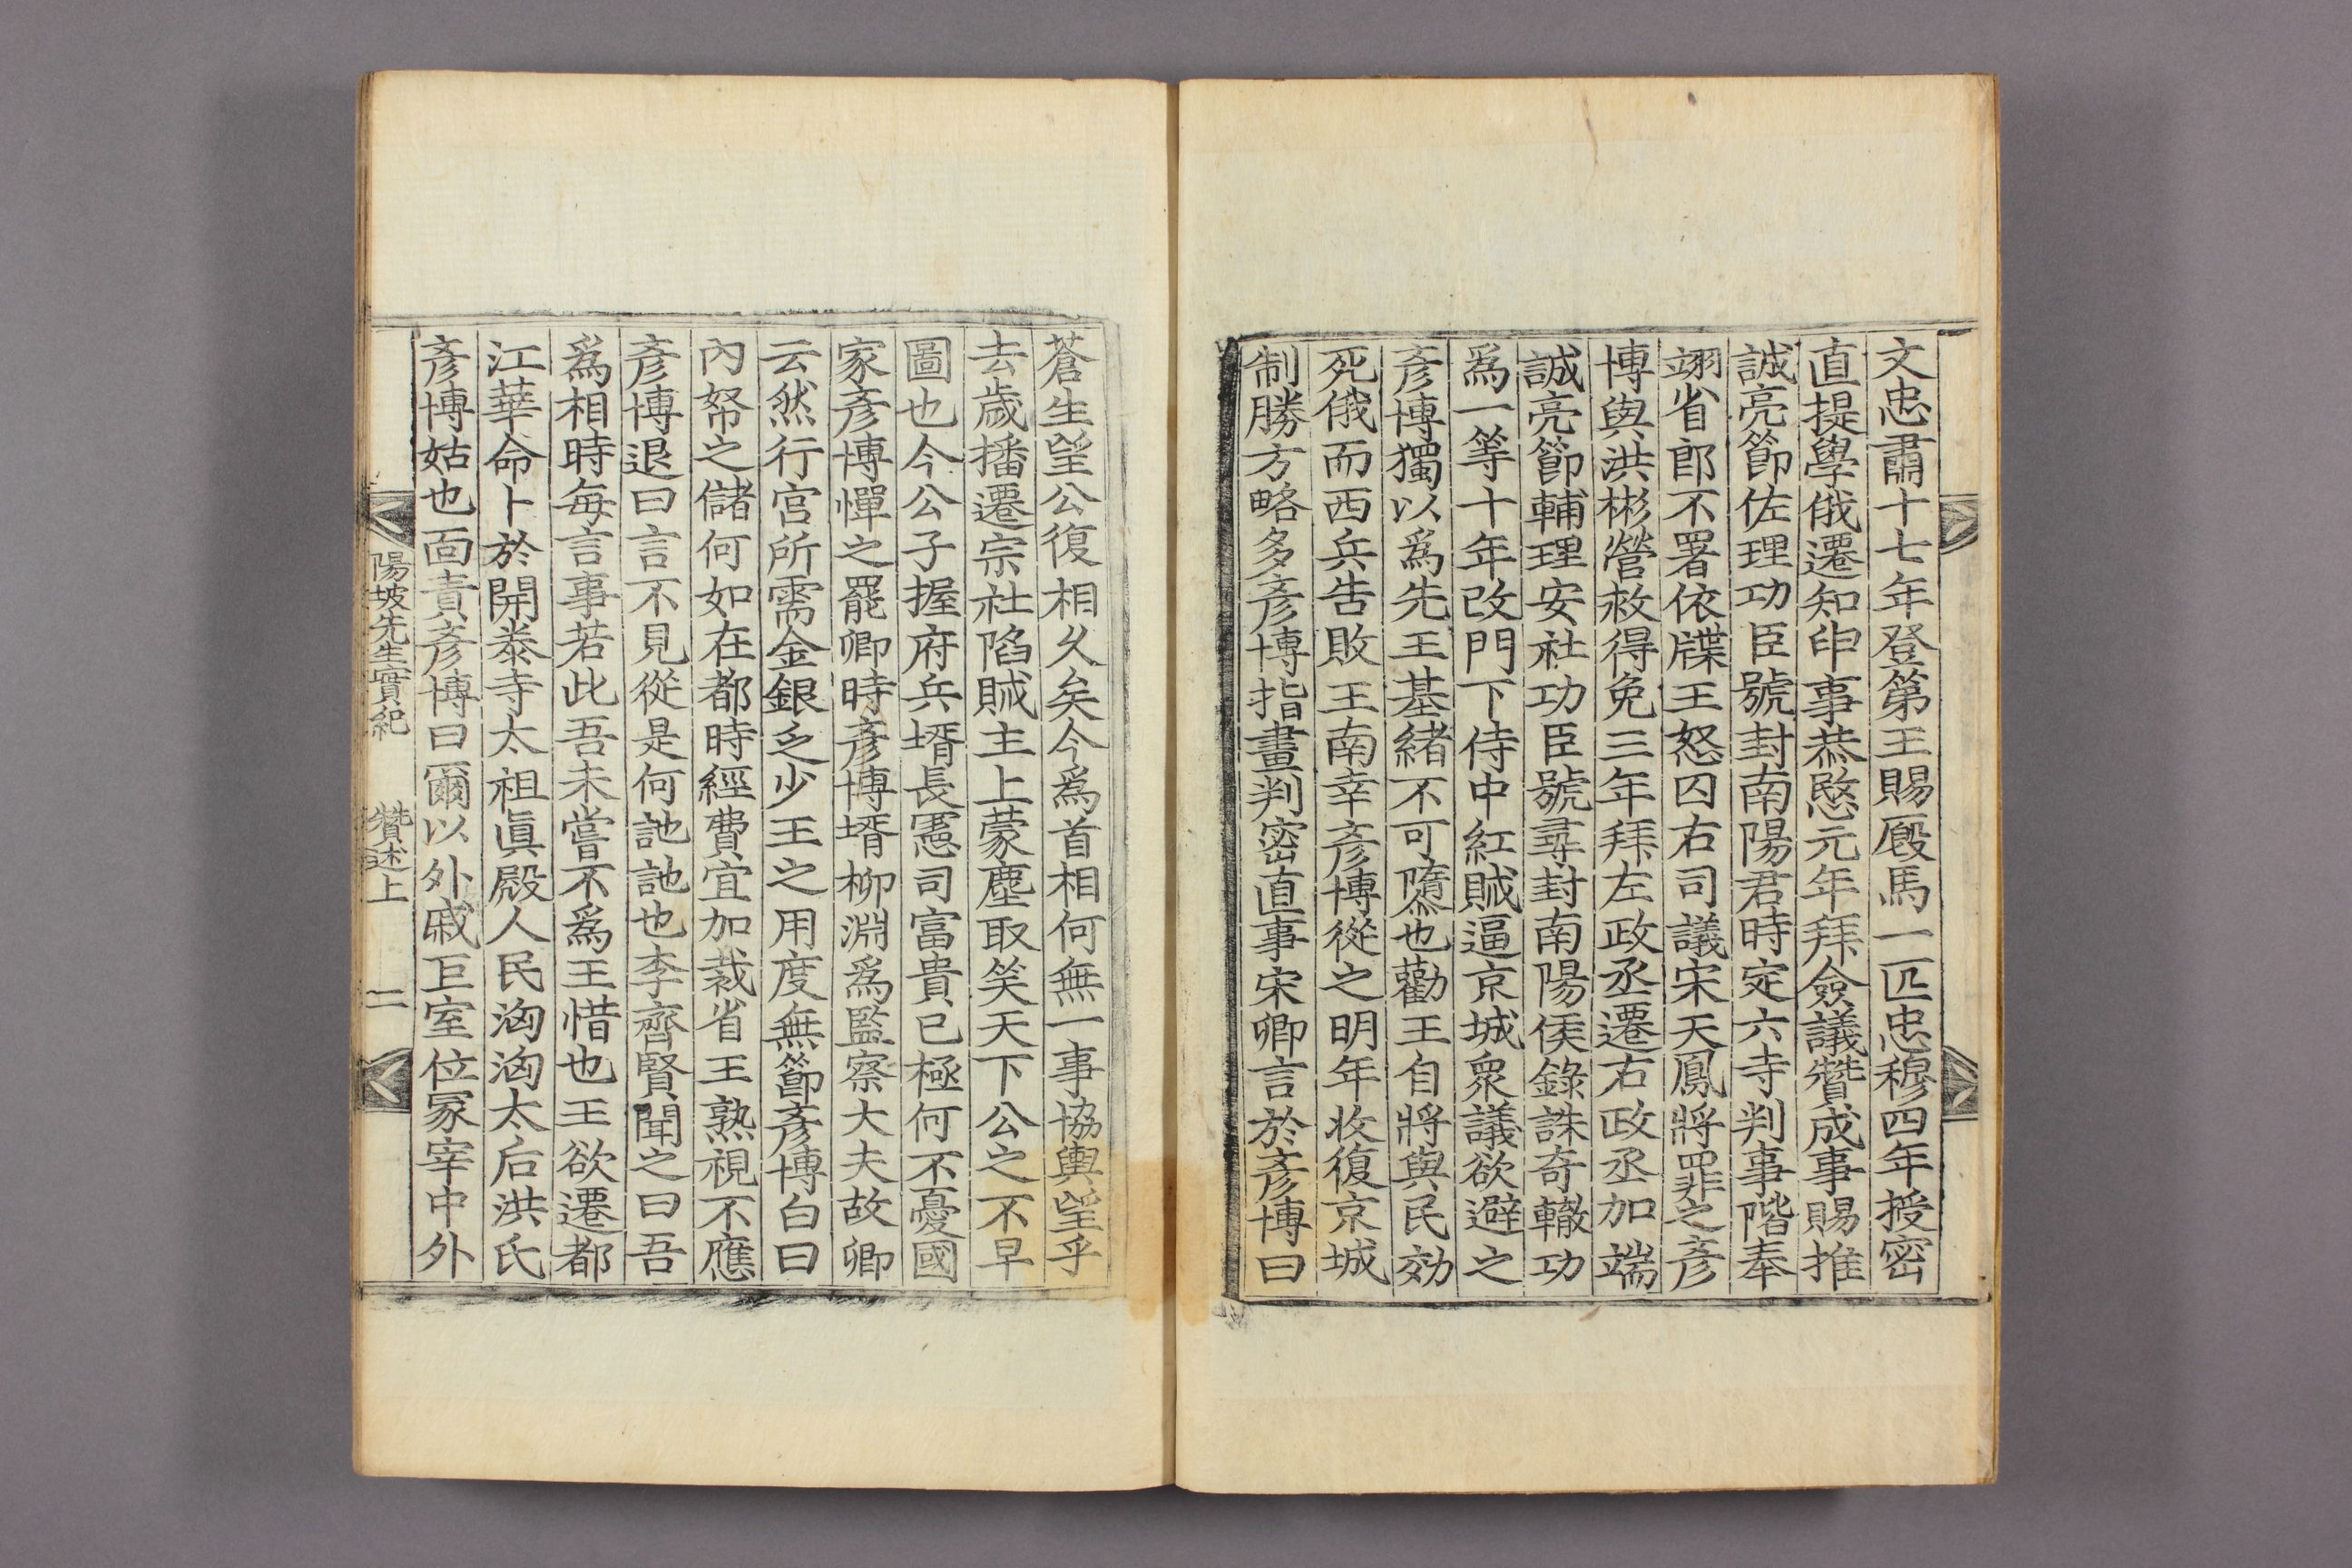 文忠肅十七年登第王賜廏馬一匹忠穆四年授密
直提學俄遷知申事恭愍元年拜僉議贊成事賜推
誠亮節佐理功臣號封南陽君時定六寺判事階奉
翊省郎不署依牒王怒囚右司議宋天鳳將罪之彥
博與洪彬營救得免三年拜左政丞遷右政丞加端
誠亮節輔理安社功臣號尋封南陽侯錄誅奇轍功
爲一等十年改門下侍中紅賊逼京城衆議欲避之
彥博獨以爲先王基緖不可隳也勸王自將與民効
死俄而西兵告敗王南幸彥博從之明年收復京城
制勝方略多彥博指畫判密直事宋卿言於彥博曰
蒼生望公復相久矣今爲首相何無一事協輿望乎
去歲播遷宗社陷賊主上蒙塵取笑天下公之不早
圖也今公子握府兵壻長憲司富貴已極何不憂國
家彥博憚之罷卿時彥博壻柳淵爲監察大夫故卿
云然行宮所需金銀乏少王之用度無節彥博白曰
內帑之儲何如在都時經費宜加裁省王熟視不應
彥博退曰言不見從是何訑訑也李齊賢聞之曰吾
爲相時每言事若此吾未嘗不爲王惜也王欲遷都
江華命卜於開泰寺太祖眞殿人民洶洶太后洪氏
彥博姑也面責彥博曰爾以外戚巨室位冢宰中外
陽坡先生實紀 贊述上 二